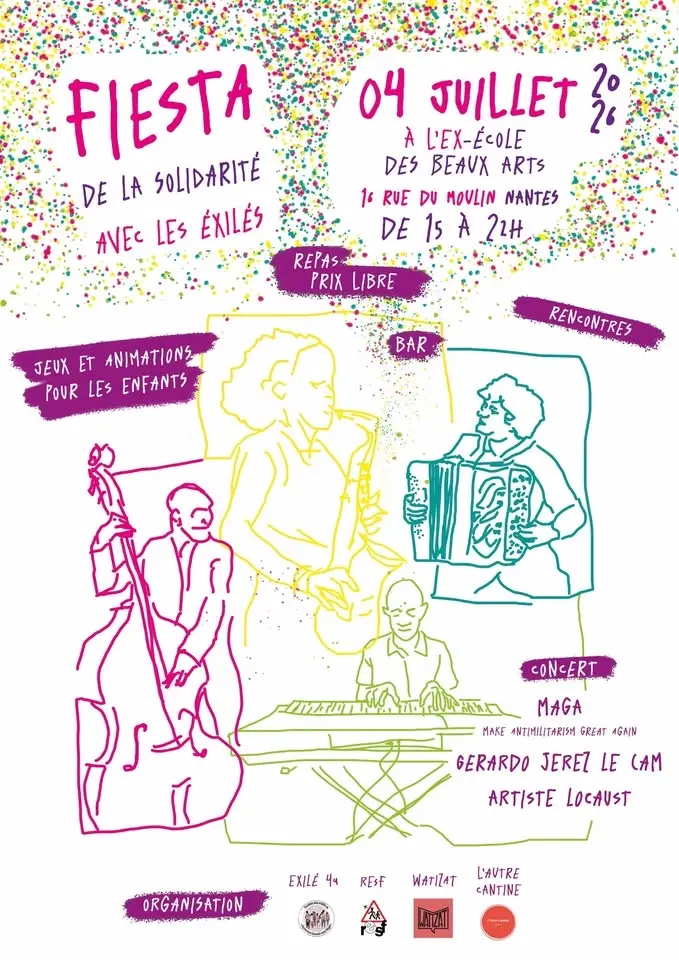 FIESTA
DE LA SOLIDARITÉ
AVEC LES ÉXILÉS
04 JUILLET 2026
À L'EX-ÉCOLE
DES BEAUX ARTS
16 RUE DU MOULIN NANTES
DE 15 À 22H
REPAS
PRIX LIBRE
RENCONTRES
BAR
JEUX ET ANIMATIONS
POUR LES ENFANTS
CONCERT
MAGA
MAKE ANTIMILITARISM GREAT AGAIN
GERARDO JEREZ LE CAM
ARTISTE LOCAUST
ORGANISATION
EXILÉ 44
RESF
WATIZAT
L'AUTRE
CANTINE
resf
WATIZAT